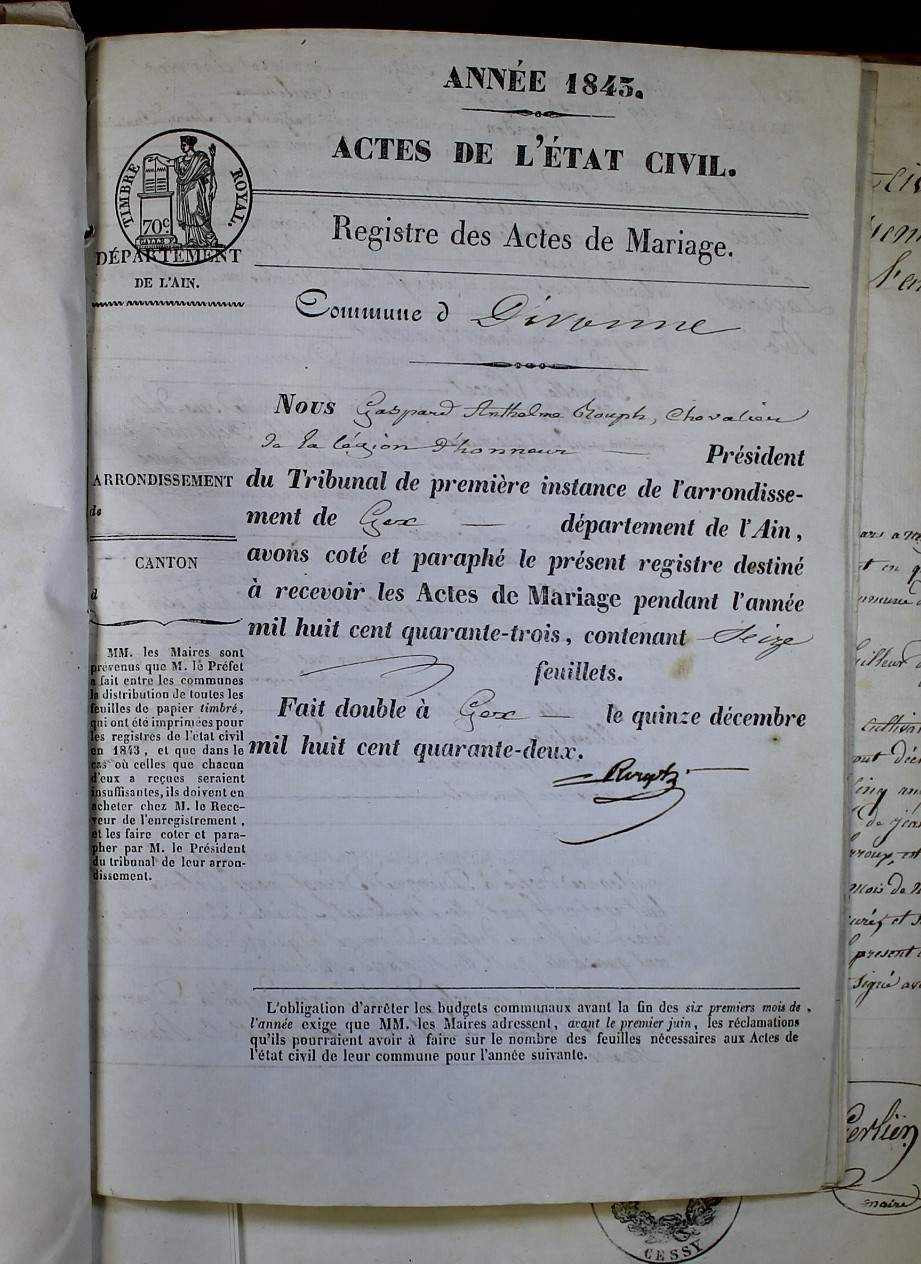 ANNÉE 1843.
ACTES DE L'ÉTAT CIVIL.
TIMBRE ROYAL.
70c
DÉPARTEMENT
DE L'AIN.
Registre des Actes de Mariage.
Commune d Divonne
Nous Gaspard Anthelme Rouph, Chevalier
de la légion d'honneur — Président
ARRONDISSEMENT
de
du Tribunal de première instance de l'arrondisse-
ment de Gex — département de l'Ain,
CANTON
d
avons coté et paraphé le présent registre destiné
à recevoir les Actes de Mariage pendant l'année
mil huit cent quarante-trois, contenant Seize
feuillets.
Fait double à Gex — le quinze décembre
mil huit cent quarante-deux.
Rouph
MM. les Maires sont
prévenus que M. le Préfet
a fait entre les communes
la distribution de toutes les
feuilles de papier timbré,
qui ont été imprimées pour
les registres de l'état civil
en 1843, et que dans le
cas où celles que chacun
d'eux a reçues seraient
insuffisantes, ils doivent en
acheter chez M. le Rece-
veur de l'enregistrement,
et les faire coter et para-
pher par M. le Président
du tribunal de leur arron-
dissement.
L'obligation d'arrêter les budgets communaux avant la fin des six premiers mois de
l'année exige que MM. les Maires adressent, avant le premier juin, les réclamations
qu'ils pourraient avoir à faire sur le nombre des feuilles nécessaires aux Actes de
l'état civil de leur commune pour l'année suivante.
maire
CESSY